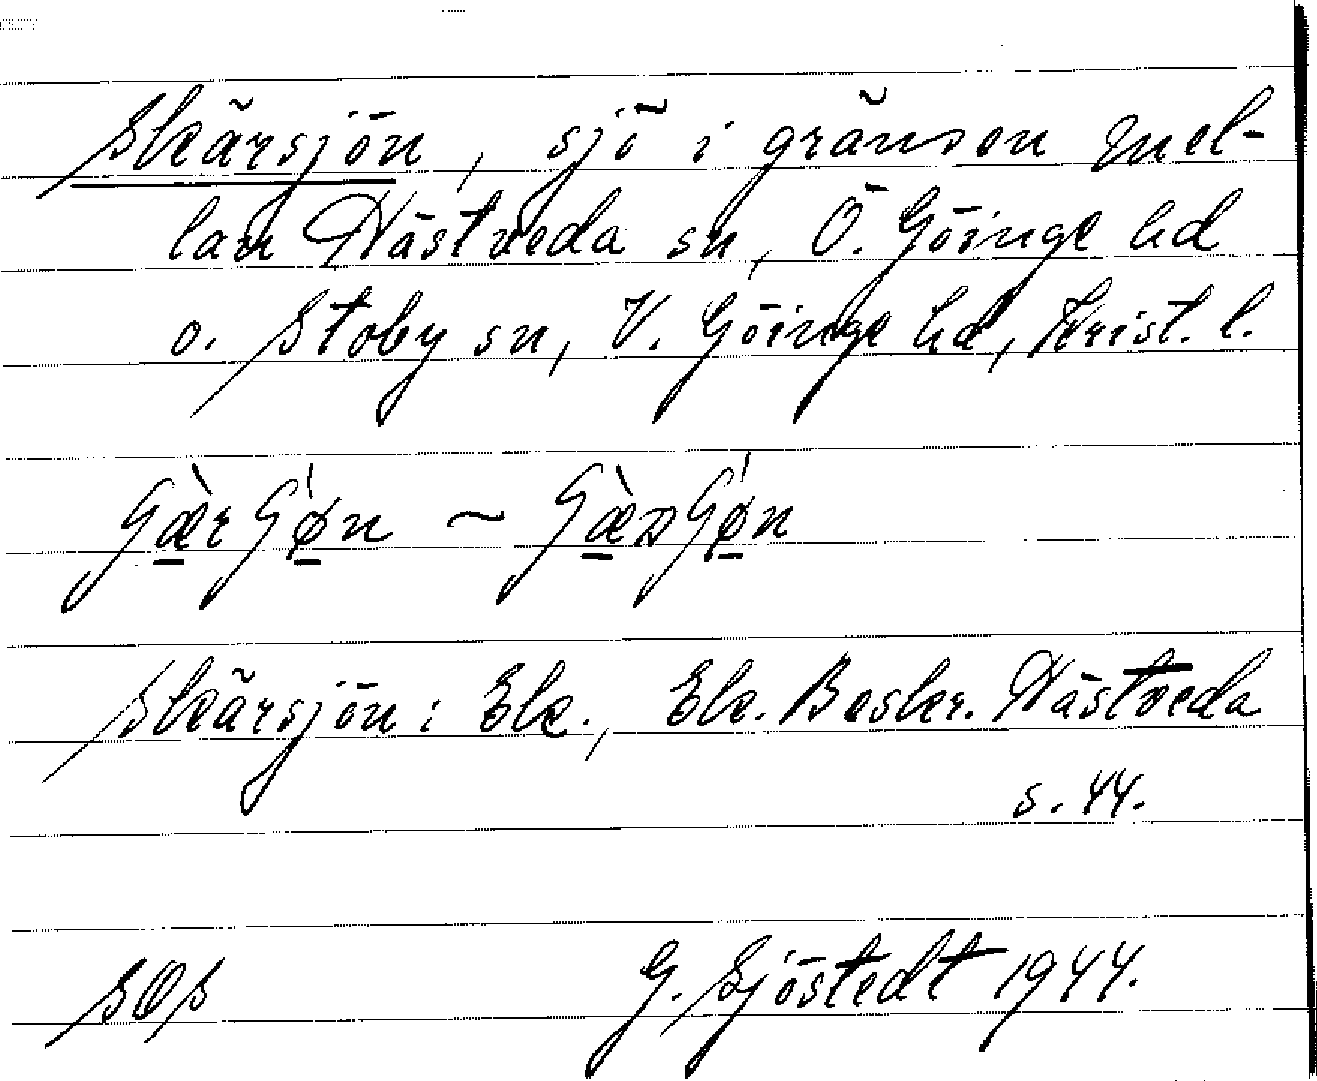 Skärsjön, sjö i gränsen mel-
lan Hästveda sn, Ö. Göinge hd
o. Stoby sn, V. Göinge hd, Krist. l.
Skärsjön: Ek., Ek. Beskr. Hästveda
s. 44.
SOS G. Sjöstedt 1944.